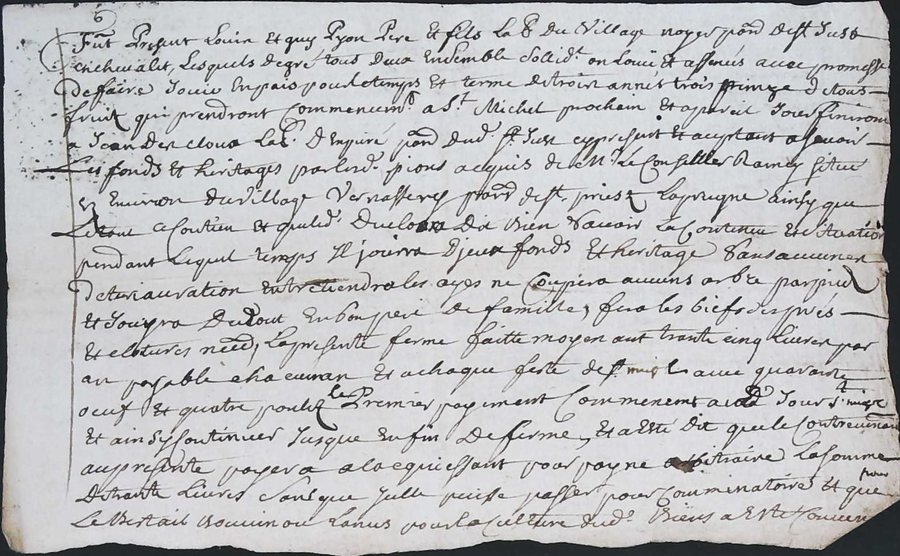 6
Fut Present Louis et guy Pyon Pere et fils La.b du Village noyer parr de st Just
en chevalet, Lesquels de gré tous deux Ensemble Sollidt on Loüé et affermés avec promesse
de faire Jouir En paix pour le temps et terme de trois années trois prinze de tous
fruit qui prendront Commencemt a St Michel prochain et a pareil Jour finiront
a Jean Des Cloux La.b parr dud. st Just cy present et aceptant a Scavoir
Les fonds et heritages parlesd. pions acquis de Mr le Conseiller Ramey Situé
Environ du Village Vernasseres parr de st priest Laprugne ainsy que
Le tout Ce Contien et que led. Ducloux Dit Bien Savoir La Contenu et Situation
pendant Lequel temps Il Jouira D jceux fonds et heritage Sans aucunes
deteriauration Entretiendra les ayes ne Coupera aucuns arbre par pied
et Jouyra Du tout En bon pere de famille, fera les biefs des prés
et Clotures necess, La presente ferme faitte moyennant trante Cinq Livres par
an payable chacun an et a chaque feste de st michel avec quarante
oeuf et quatre poulets Le Premier payement Commencent aud Jour St michel
et ainsy Continuer Jusque En fin de ferme, et a Eté dit que le Contrevenant
au presente payera a lacquiessant pour payne arbitraire La Somme
de trante Livres Sans que Jcelle puisse passer pour Comminatoire et que pour
Le Bestail Bouvin ou Lanus pour La Culture dud. Biens a Esté Conven